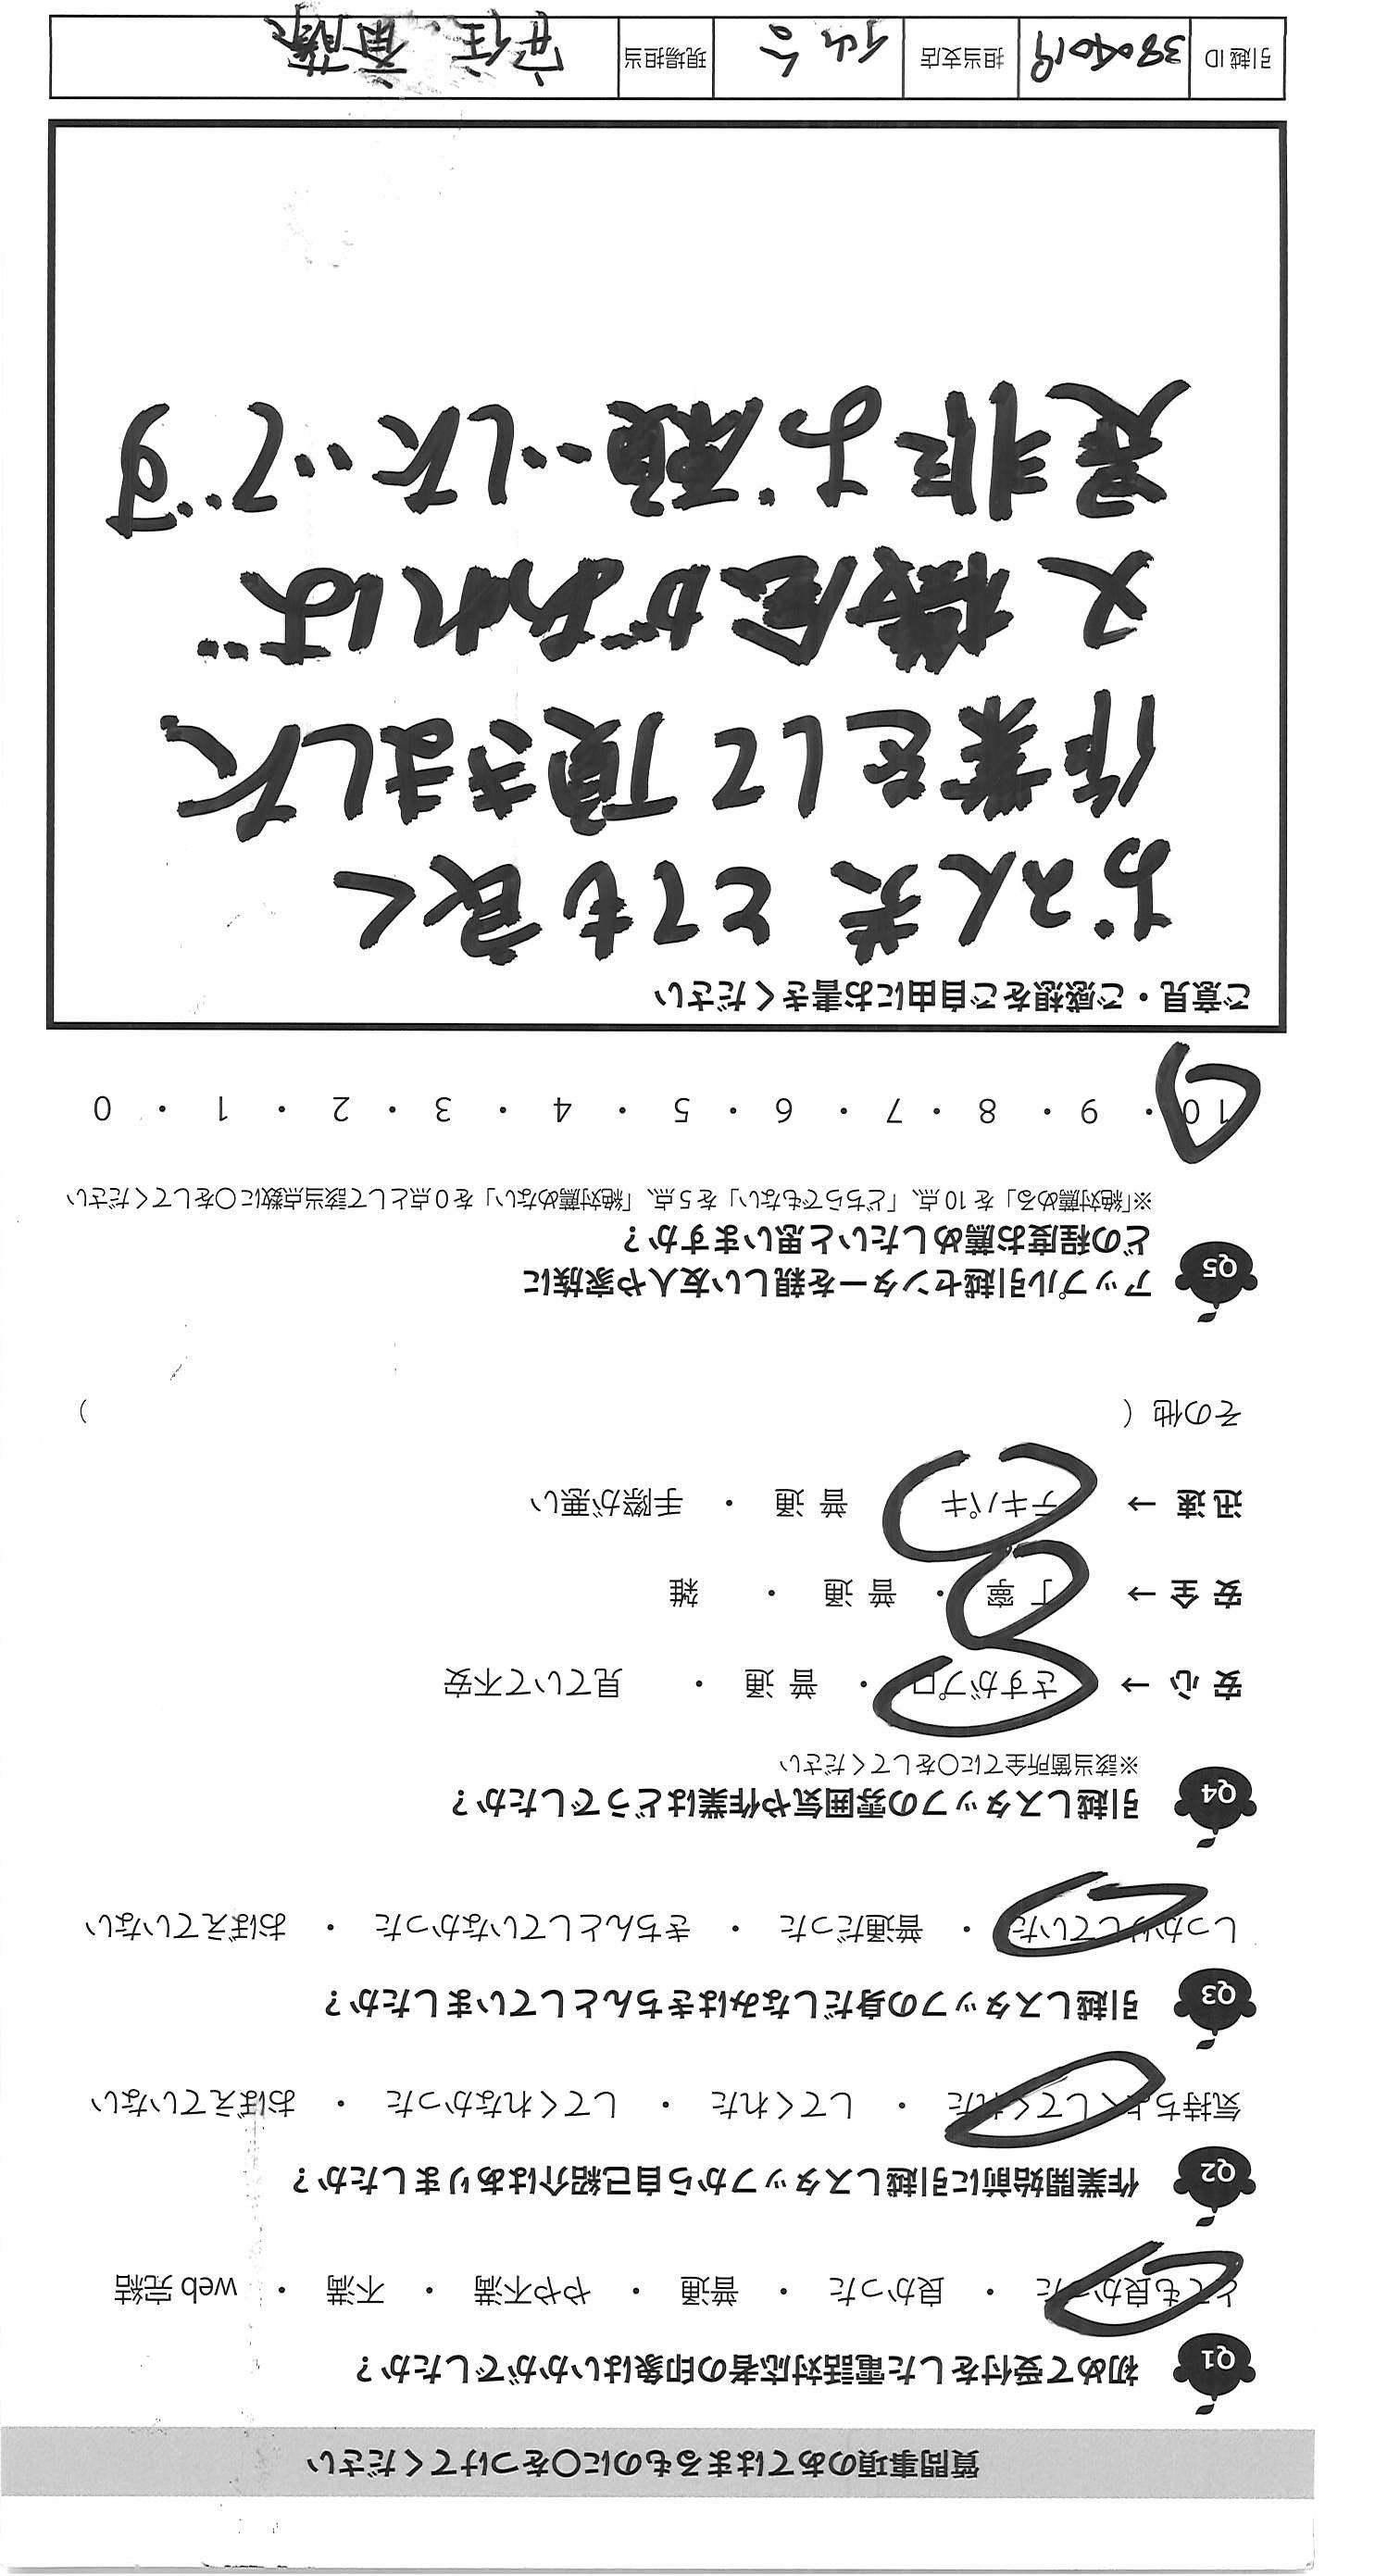 質問事項のあてはまるものに〇をつけてください
Q1 初めて受付をした電話対応者の印象はいかがでしたか？
とても良かった ・ 良かった ・ 普通 ・ やや不満 ・ 不満 ・ web 完結
Q2 作業開始前に引越しスタッフから自己紹介はありましたか？
気持ちよくしてくれた ・ してくれた ・ してくれなかった ・ おぼえていない
Q3 引越しスタッフの身だしなみはきちんとしていましたか？
しっかりしていた ・ 普通だった ・ きちんとしていなかった ・ おぼえていない
Q4 引越しスタッフの雰囲気や作業はどうでしたか？
※該当箇所全てに〇をしてください
安 心 → さすがプロ ・ 普 通 ・ 見ていて不安
安 全 → 丁 寧 ・ 普 通 ・ 雑
迅 速 → テキパキ ・ 普 通 ・ 手際が悪い
その他（ ）
Q5 アップル引越センターを親しい友人や家族に
どの程度お薦めしたいと思いますか？
※「絶対薦める」を 10 点、「どちらでもない」を 5 点、「絶対薦めない」を 0 点として該当点数に〇をしてください
10 ・ 9 ・ 8 ・ 7 ・ 6 ・ 5 ・ 4 ・ 3 ・ 2 ・ 1 ・ 0
ご意見・ご感想をご自由にお書きください
お2人共 とても良く
作業をして頂きました
又 機会があれば…
是非お願いしたいです
引越 ID 3804019 担当支店 仙台 現場担当 安住、斎藤